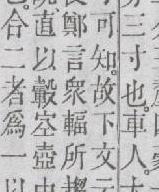 三寸也。車人
可知。故下文
鄭言衆輻所
直以轂空壺中
合二者爲一以